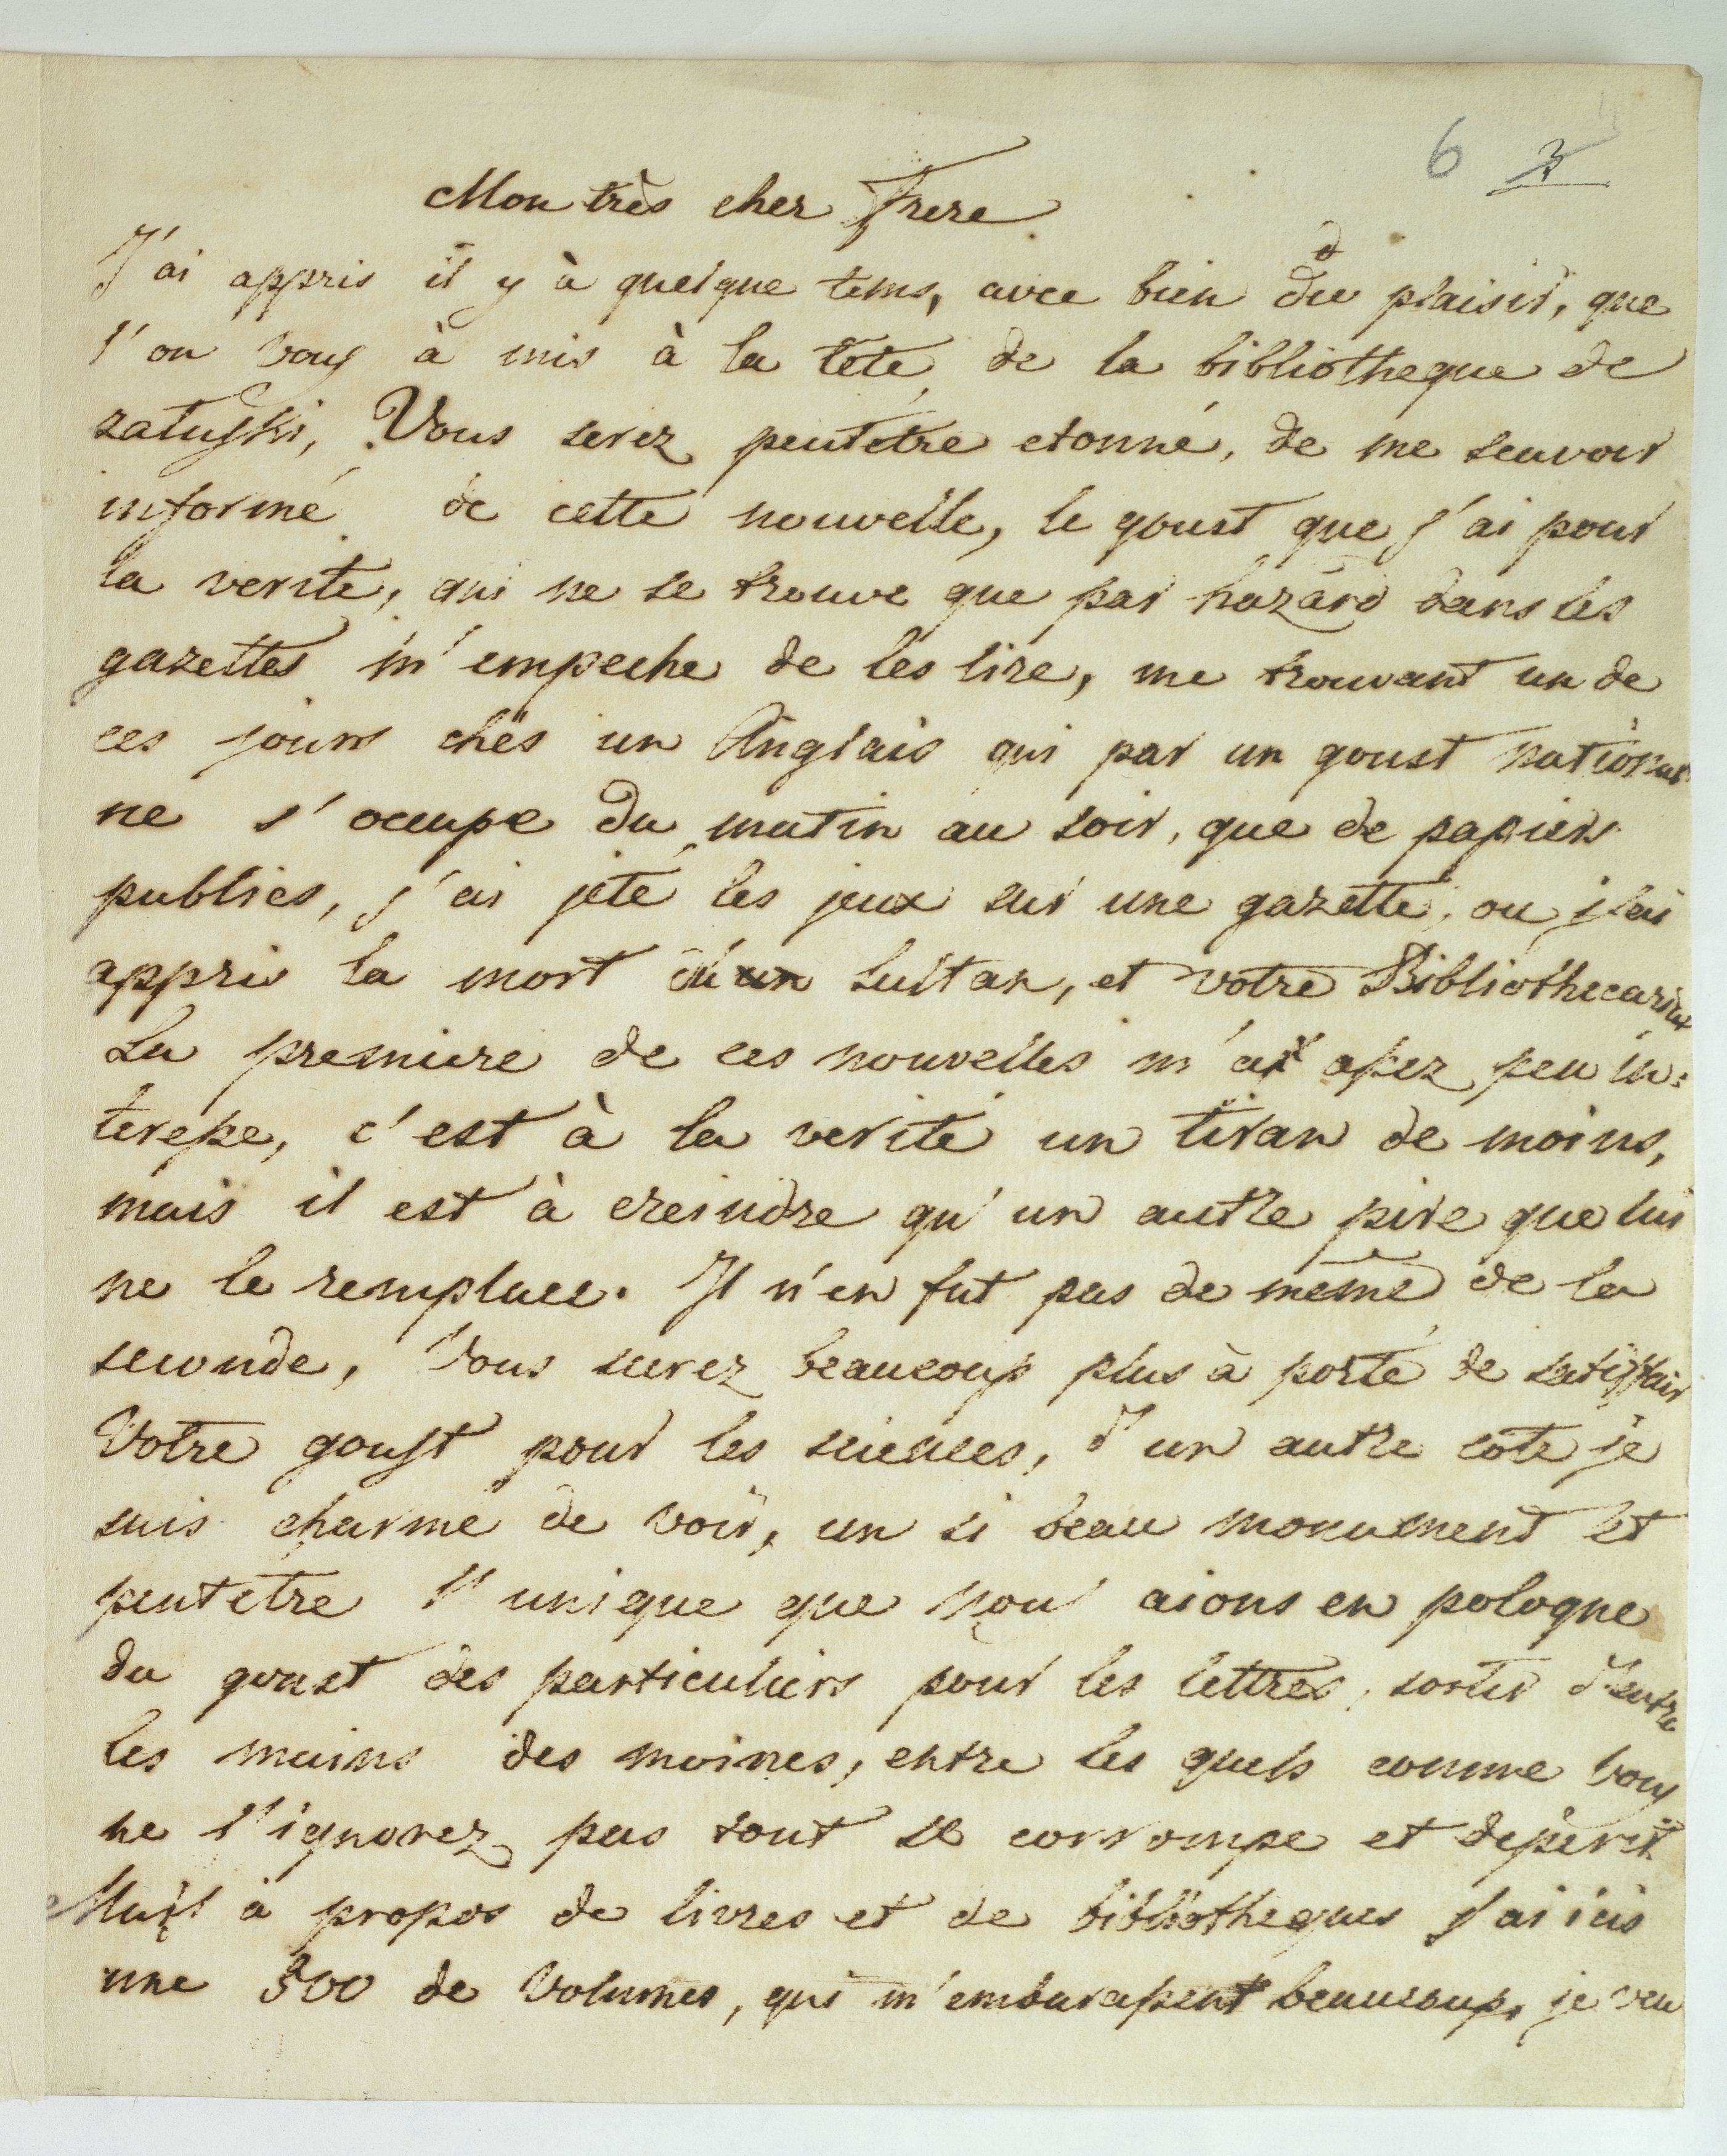 6
Mon très cher Frere
J'ai appris il y à quelque tems, avec bien du plaisir, que
l'on vous à mis à la tète de la bibliotheque de
załuski, Vous serez peutétre etonné, de me scavoir
informé de cette nouvelle, le goust que j'ai pour
la verite, qui ne se trouve que par hazard dans les
gazettes m'empeche de les lire, me trouvant un de
ces jours chés un Anglais qui par un goust national
ne s'occupe du matin au soir, que de papiers
publics, j'ai jeté les jeux sur une gazette, ou j'ai
appris la mort du Sultan, et votre Bibliothecariat
La premiere de ces nouvelles m'a assez peu in:
teresse, c'est à la verité un tiran de moins,
mais il est à creindre qu'un autre pire que lui
ne le remplace. Il n'en fut pas de même de la
seconde, Vous serez beaucoup plus à porté de satisfair
Votre goust pour les sciences, d'un autre cote je
suis charmé de voir, un si beau monument et
peut etre l'unique que nous aions en pologne
du goust des particuliers pour les lettres, sortir d'entre
les mains des moines, entre les quels comme vous
ne l'ignorez pas tout se corrompe et deperit
Mais à propos de livres et de bibliotheques j'ai icis
une 500 de Volumes, qui m'embarassent beaucoup, je veu